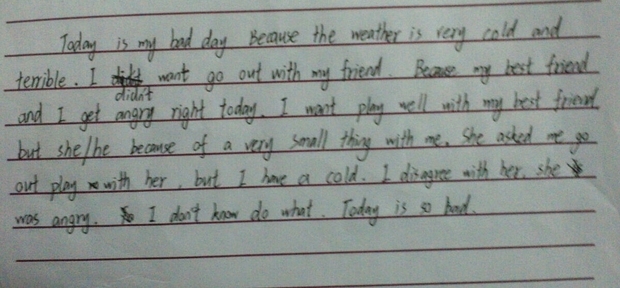 Today is my bad day Because the weather is very cold and
terrible. I didn't want go out with my friend. Because my best friend
and I get angry right today. I want play well with my best friend
but she/he because of a very small thing with me. She asked me go
out play with her, but I have a cold. I disagree with her, she
was angry. I don't know do what. Today is so bad.